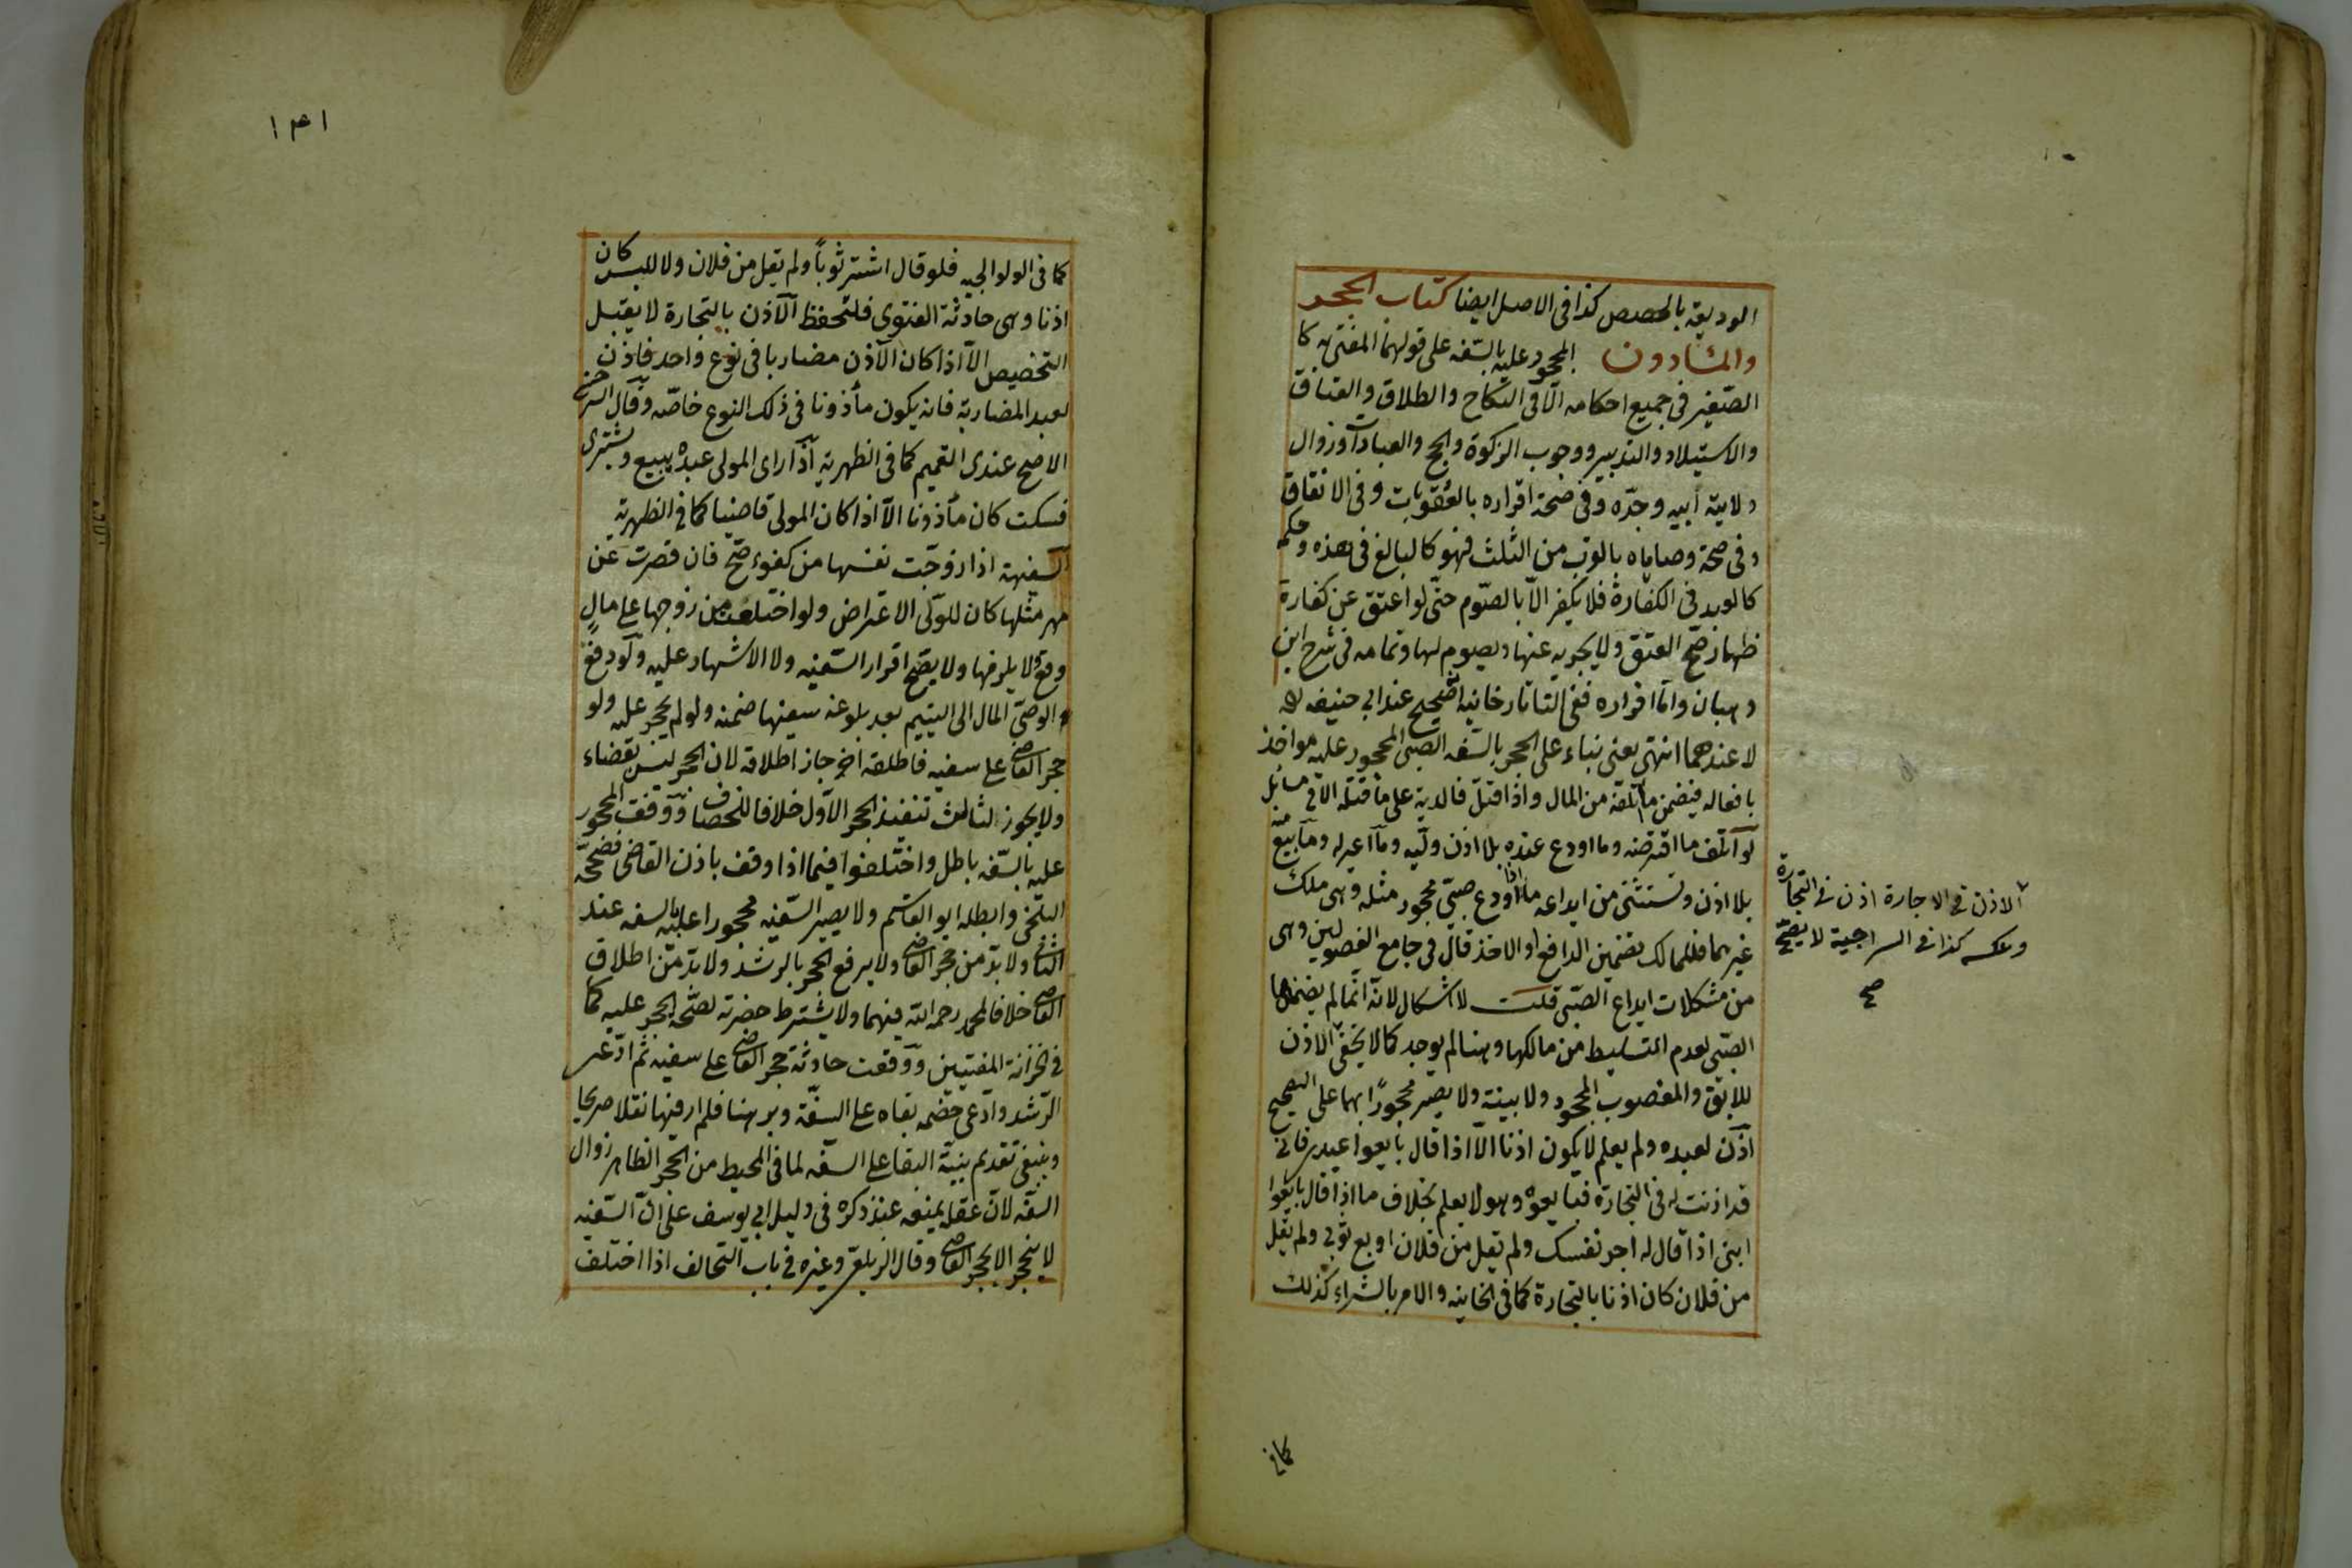 الوديعة بالحصص كذا فى الاصل ايضا كتاب الحجر
والمأذون المحجور عليه بالسفه على قولهما المفتى به كا
الصّغير فى جميع احكامه الّا فى النكاح والطلاق والعتاق
والاستيلاد والتدبير ووجوب الزكوة والحج والعبادات وزوال
ولاية ابيه وجدّه وفى صحة اقراره بالعقوبات وفى الانفاق
وفى صحة وصاياه بالقرب من الثلث فهو كالبالغ فى هذه وحكمه
كالعبد فى الكفارة فلا يكفر الّا بالصّوم حتّى لو اعتق عن كفارة
ظهار صحّ العتق ولا يجزيه عنها ويصوم لها وتمامه فى شرح ابن
وهبان وامّا اقراره ففى التاتارخانيه انّه صحيح عند ابى حنيفه
لا عندهما انتهى يعنى بناء على الحجر بالسّفه الصّبى المحجور عليه مواخذ
بافعاله فيضمن ما اتلفه من المال واذا قتل فالدية على عاقلته الا فى مسائل
لو اتلف ما اقترضه وما اودع عنده بلا اذن وليّه وما اعير له وما بيع منه
بلا اذن وتستثنى من ايداعه ما اذا اودع صبىّ محجور مثله وهى ملك
غيرهما فللمالك تضمين الدافع او الاخذ قال فى جامع الفصولين وهى
من مشكلات ايداع الصّبى قلت لا اشكال لانّه انّما لم يضمنها
الصّبى لعدم التسليط من مالكها وهنا لم يوجد كما لا يخفى الاذن
للابق والمغصوب المجحود ولا بينة ولا يصير محجورًا بهما على الصحيح
اذن لعبده ولم يعلم لا يكون اذنا الّا اذا قال بايعوا عبدى فانّى
قد اذنت له فى التجارة فبايعوه وهو لا يعلم بخلاف ما اذا قال بايعوا
ابنى اذا قال له اجر نفسك ولم تقل من فلان او بع ثوبى ولم تقل
من فلان كان اذنا بالتجارة كما فى الخانيه والامر بالشراء كذلك
الاذن فى الاجارة اذن فى التجارة
وعكسه كذا فى السراجية لا يصحّ
صح
كما فى
١٣١
كما فى الولوالجيه فلو قال اشتر ثوباً ولم تقل من فلان ولا للبس كان
اذنا وهى حادثة الفتوى فلتحفظ الاذن بالتجارة لا يقبل
التخصيص الّا اذا كان الآذن مضاربا فى نوع واحد فاذن
لعبد المضاربة فانه يكون مأذونا فى ذلك النوع خاصّة وقال السرخسى
الاصح عندى التعميم كما فى الظهرية اذا راى المولى عبده يبيع ويشترى
فسكت كان مأذونا الّا اذا كان المولى قاضيا كما فى الظهرية
السفيهة اذا زوّجت نفسها من كفوء صحّ فان قصرت عن
مهر مثلها كان للولى الاعتراض ولو اختلعت من زوجها على مالٍ
وقع ولا يلزمها ولا يصحّ اقرار السّفيه ولا الاشهاد عليه ولو دفع
الوصىّ المال الى اليتيم بعد بلوغه سفيها ضمنه ولو لم يحجر عليه ولو
حجر القاضى على سفيه فاطلقه اخر جاز اطلاقه لان الحجر ليس بقضاء
ولا يجوز لثالث تنفيذ الحجر الاول خلافا للخصاف ووقف المحجور
عليه بالسّفه باطل واختلفوا فيما اذا وقف باذن القاضى فصحّحه
البلخى وابطله ابو القاسم ولا يصير السّفيه محجورا عليه بالسفه عند
الثانى ولا بدّ من حجر القاضى ولا يرفع الحجر بالرشد ولا بدّ من اطلاق
القاضى خلافا لمحمد رحمه الله فيهما ولا يشترط حضرته لصحّة الحجر عليه كما
فى خزانة المفتيين ووقعت حادثة حجر القاضى على سفيه ثم ادّعى
الرّشد وادّعى خصمه بقاه على السفه وبرهنا فلم ار فيها نقلا صريحا
وينبغى تقديم بينة البقا على السفه لما فى المحيط من الحجر الظاهر زوال
السفه لان عقله يمنعه عنه ذكره فى دليل ابى يوسف على انّ السّفيه
لا ينحجر الا بحجر القاضى وقال الزيلعى وغيره فى باب التحالف اذا اختلف